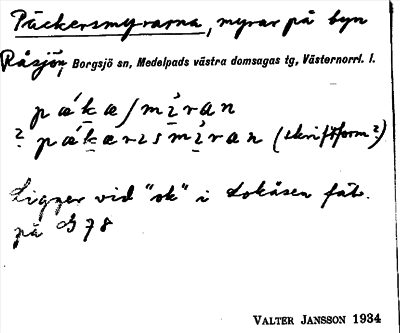 Päckersmyrarna, myrar på byn
Råsjön, Borgsjö sn, Medelpads västra domsagas tg, Västernorrl. l.
pǽka/mìran
? pǽkarısmìran (skriftform?)
Ligger vid "sk" i Lokåsen fäb.
på G 78
VALTER JANSSON 1934